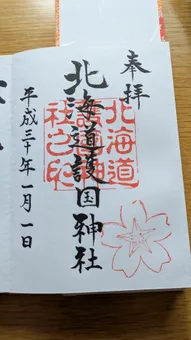 奉拝
北海道護国神社
平成三十年一月一日
北海道
社之印